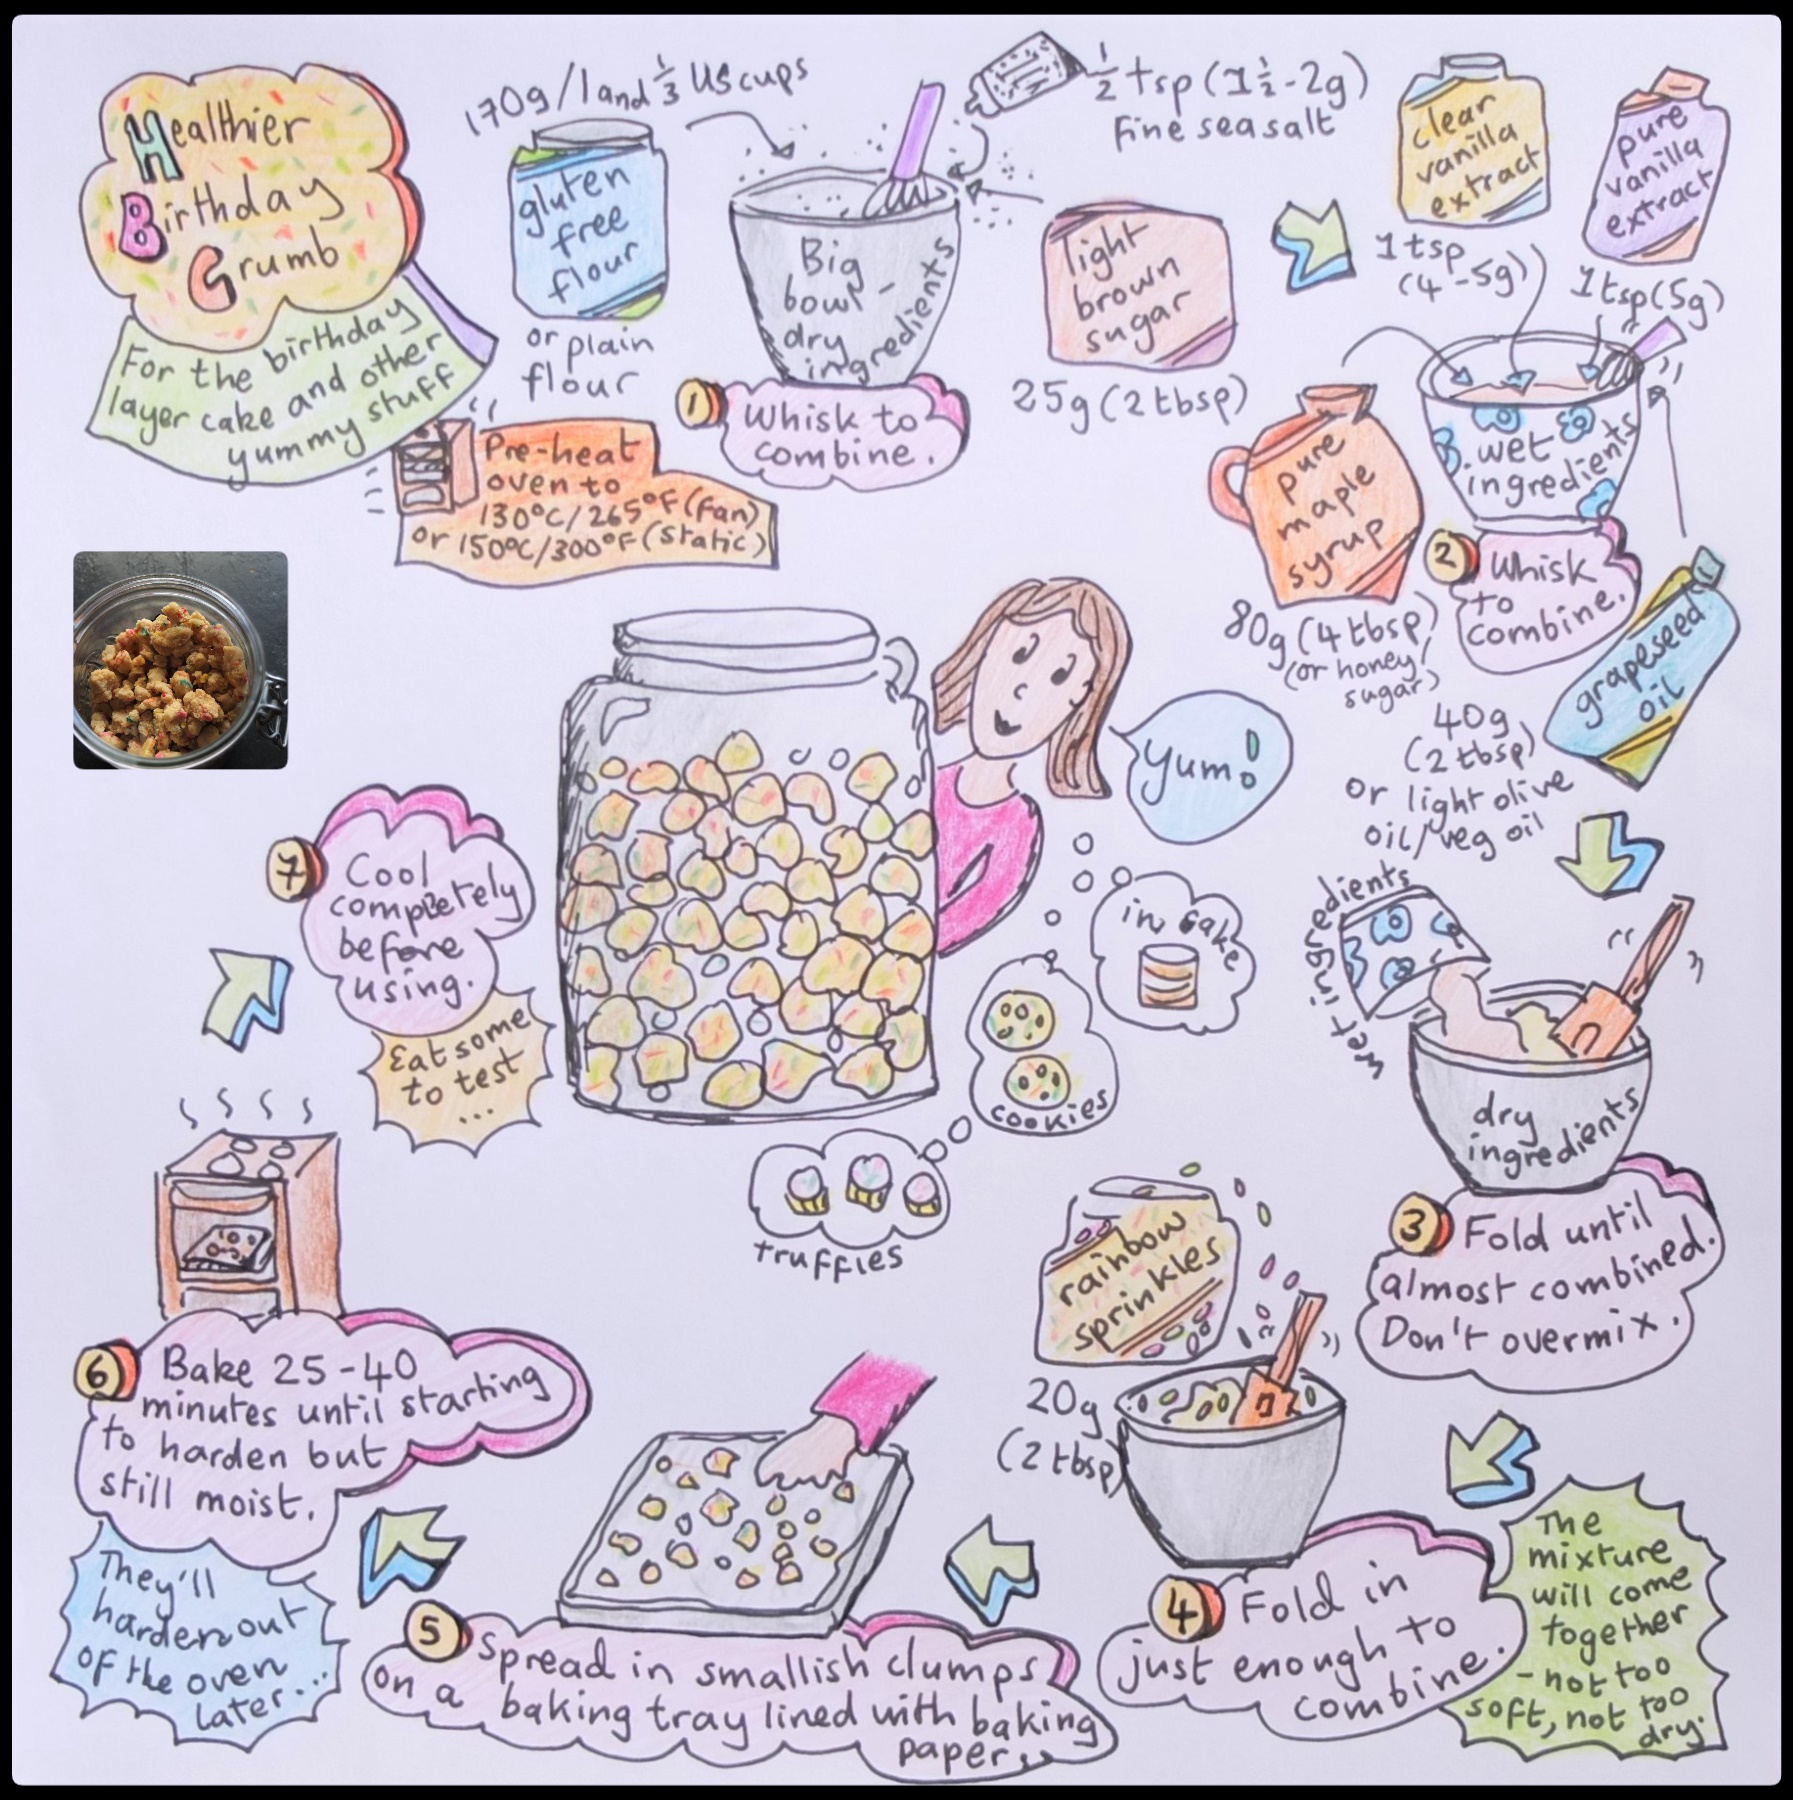 Healthier
Birthday
Crumb
For the birthday
layer cake and other
yummy stuff
Pre-heat
oven to
130°C/265°F (fan)
or 150°C/300°F (static)
170g/1 and 1/3 US cups
gluten
free
flour
or plain
flour
Big
bowl -
dry
ingredients
1/2 tsp (1 1/2 - 2g)
fine sea salt
light
brown
sugar
25g (2 tbsp)
1
Whisk to
combine.
clear
vanilla
extract
1 tsp
(4-5g)
pure
vanilla
extract
1 tsp (5g)
pure
maple
syrup
80g (4 tbsp)
(or honey/
sugar)
wet
ingredients
2
Whisk
to
combine.
grapeseed
oil
40g
(2 tbsp)
or light olive
oil/veg oil
wet ingredients
dry
ingredients
3
Fold until
almost combined.
Don't overmix.
rainbow
sprinkles
20g
(2 tbsp)
4
Fold in
just enough to
combine.
The
mixture
will come
together
- not too
soft, not too
dry.
5
Spread in smallish clumps
on a baking tray lined with baking
paper.
6
Bake 25-40
minutes until starting
to harden but
still moist.
They'll
harden out
of the oven
later...
7
Cool
completely
before
using.
Eat some
to test
...
Yum!
in cake
cookies
truffles